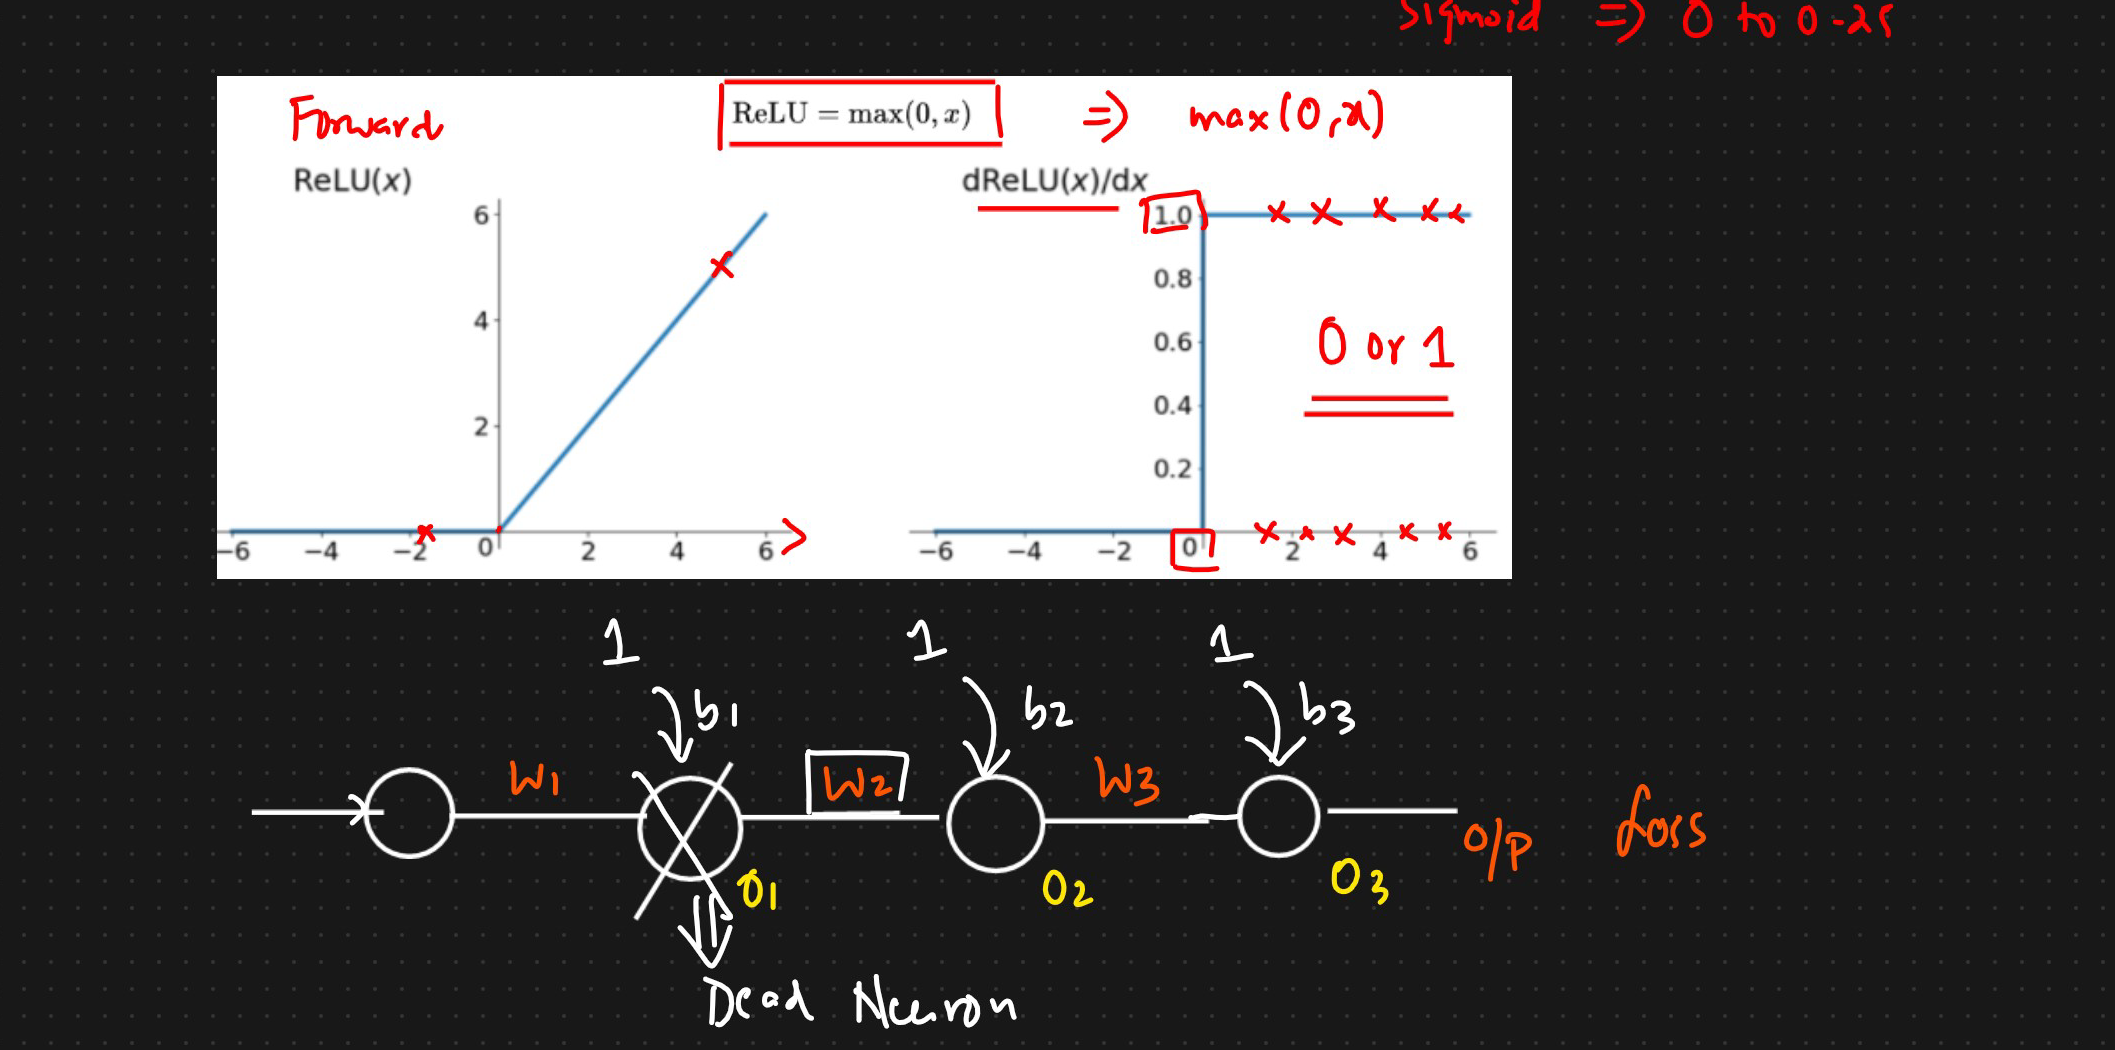 Sigmoid ⇒ 0 to 0.25
Forward
ReLU = max(0, x) ⇒ max(0,x)
ReLU(x)
6
4
2
−6 −4 −2 0 2 4 6
dReLU(x)/dx
1.0
0.8
0.6
0.4
0.2
−6 −4 −2 0 2 4 6
0 or 1
1 1 1
b1 b2 b3
W1 W2 W3
O1 O2 O3
O/P Loss
Dead Neuron